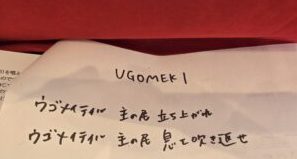 UGOMEKI
ウゴメイテイル 主の尻 立ち上がれ
ウゴメイテイル 主の尻 息を吹き返せ